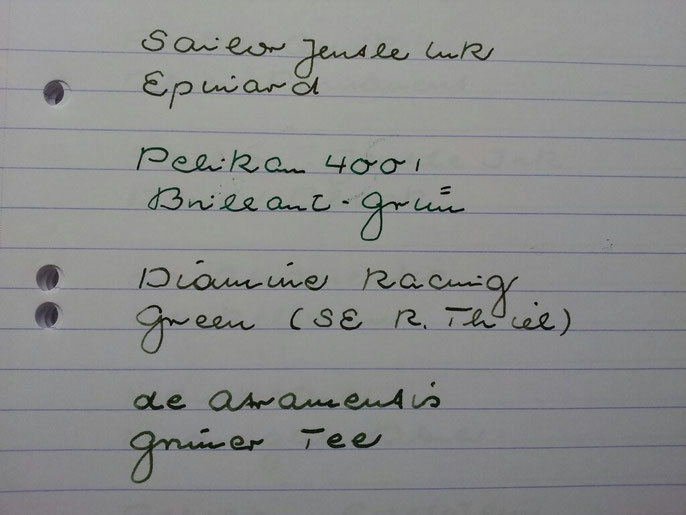 Sailor Jentle Ink
Epinard
Pelikan 4001
Brillant-grün
Diamine Racing
Green (SE R. Thiel)
de Atramentis
grüner Tee